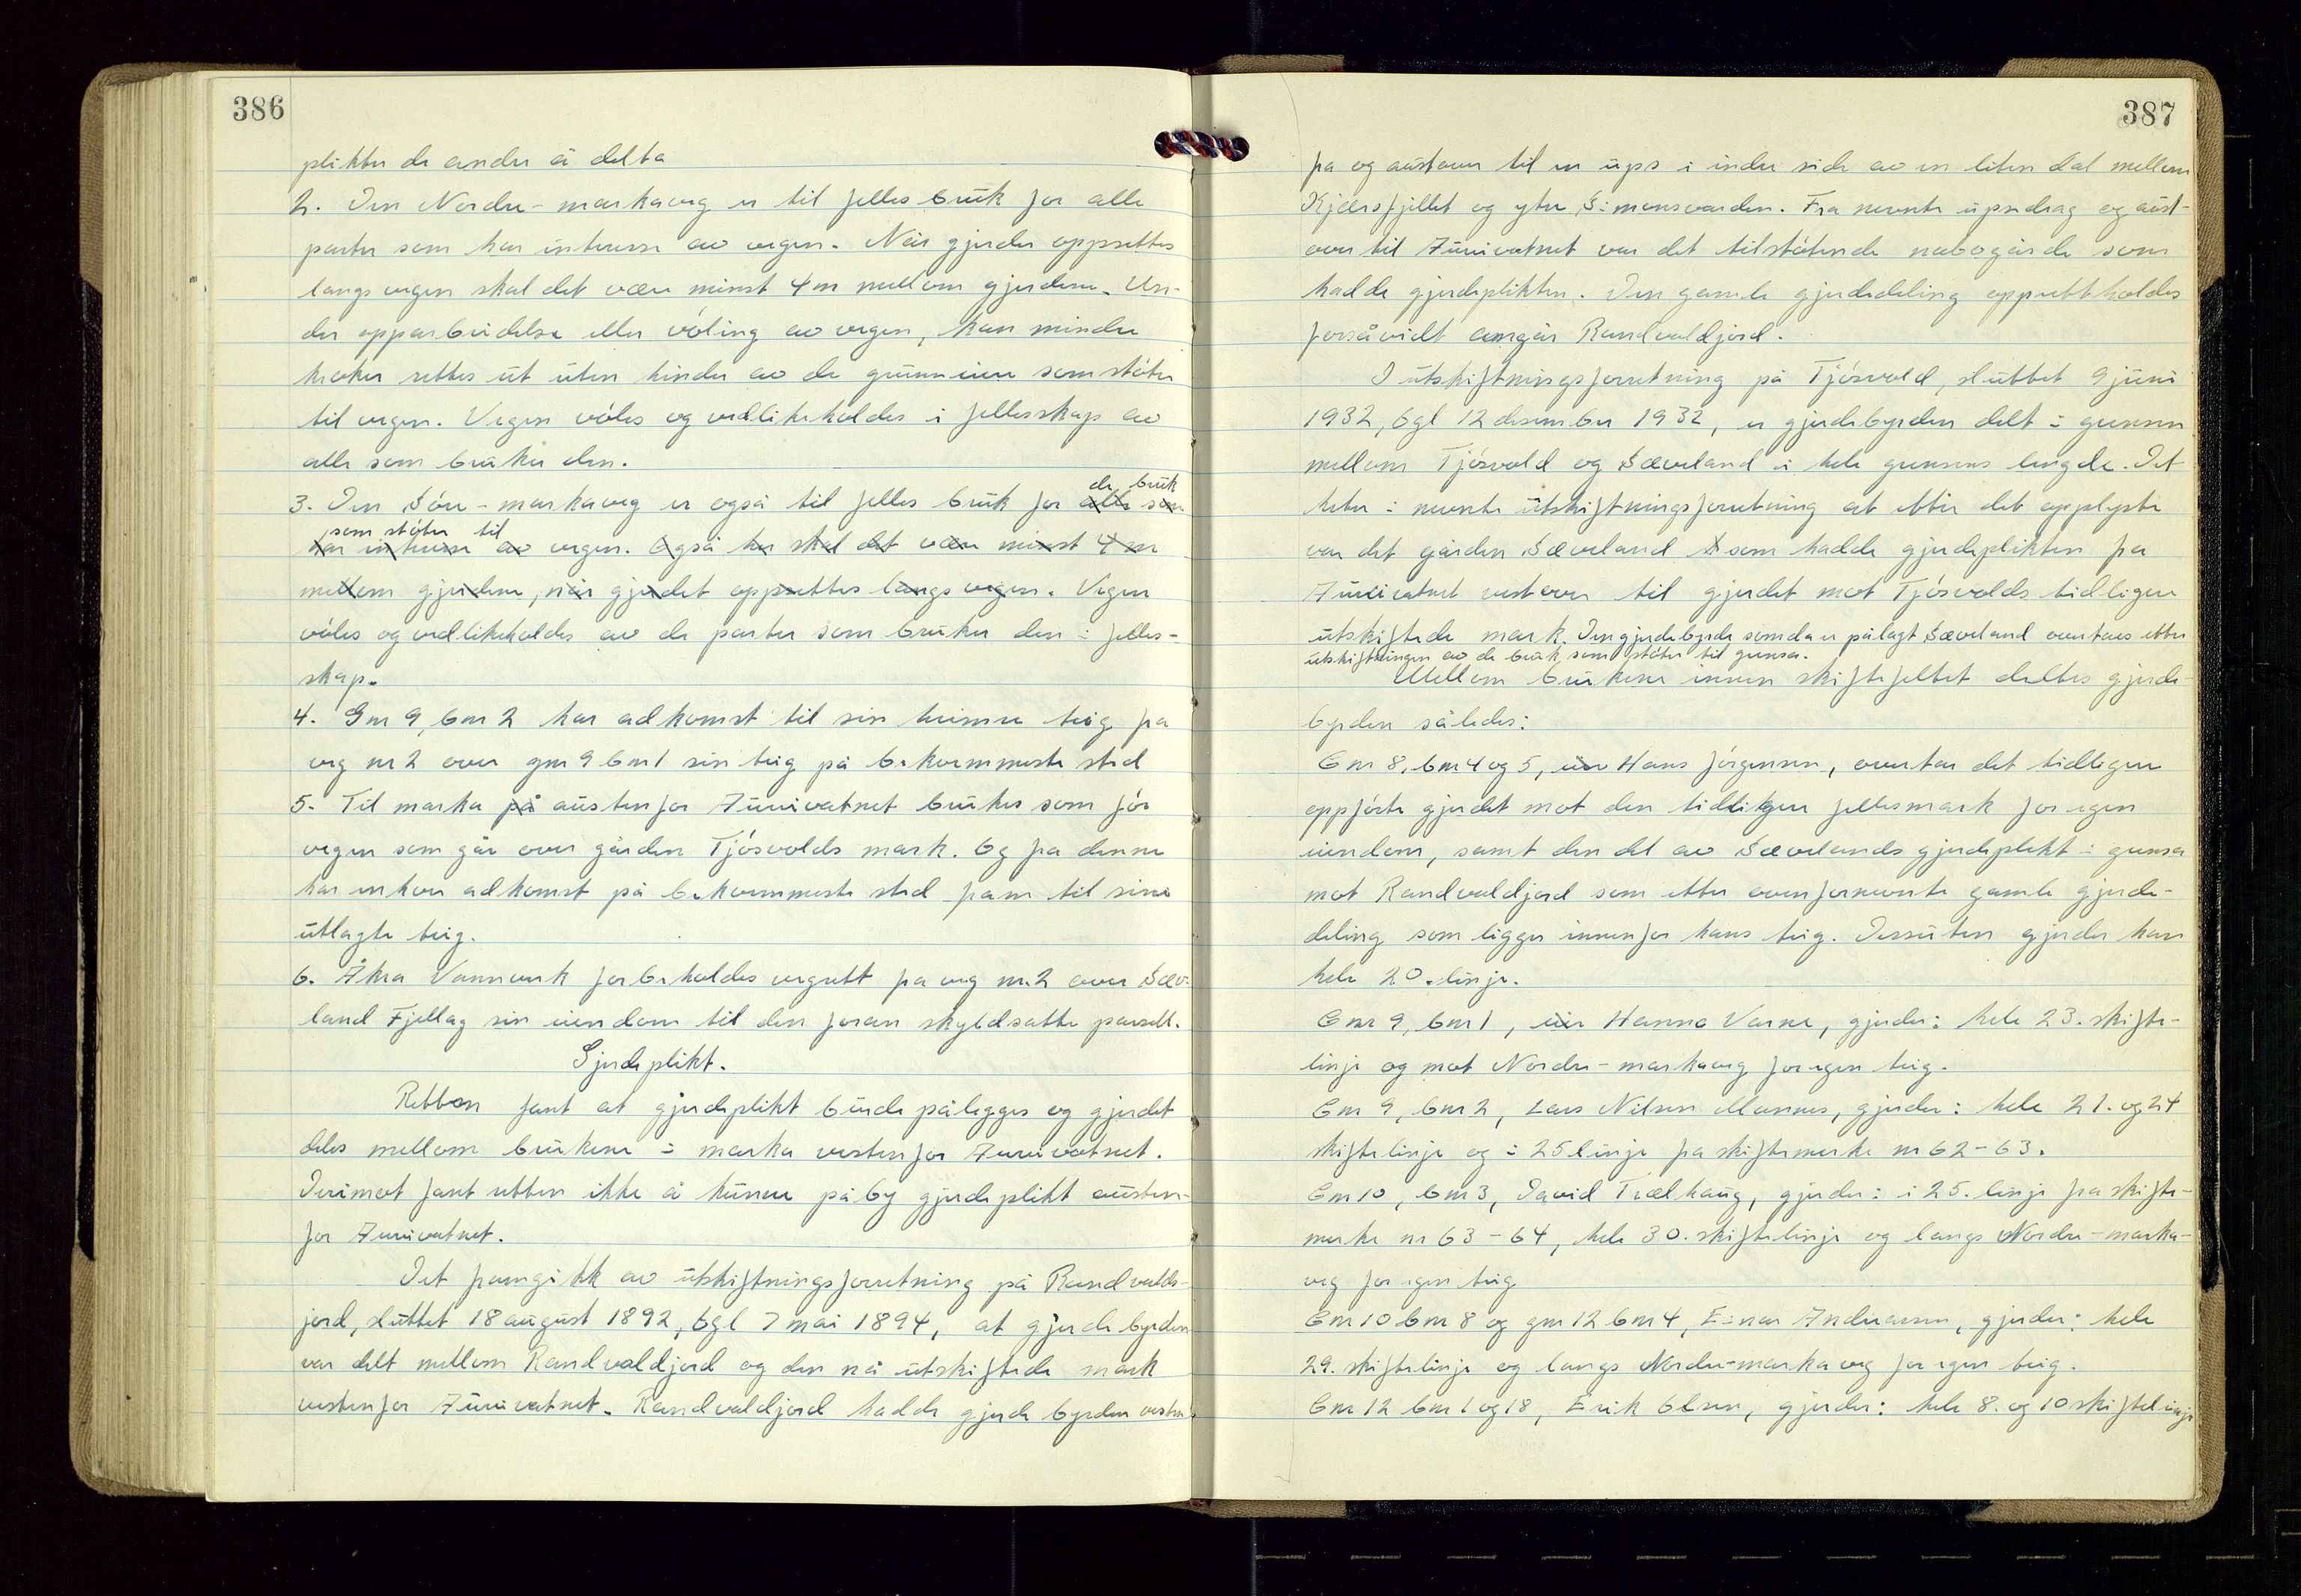 386
plikter de andre å delta
2. Den Nordre-markaveg er til felles bruk for alle
parter som har interesse av vegen. Når gjerder oppsettes
langs vegen skal det være minst 4 m mellom gjerdene. Un-
der opparbeidelse eller vøling av vegen, kan mindre
kroker rettes ut uten hinder av de grunneiere som støter
til vegen. Vegen vøles og vedlikeholdes i fellesskap av
alle som bruker den.
de bruk
3. Den Søre-markaveg er også til felles bruk for alle som
som støter til
har interesse av vegen. Også her skal det være minst 4 m
mellom gjerdene, når gjerdet oppsettes langs vegen. Vegen
vøles og vedlikeholdes av de parter som bruker den i felles-
skap.
4. Gnr 9, bnr 2 har adkomst til sin heimre teig fra
veg nr 2 over gnr 9 bnr 1 sin teig på bekvemmeste sted
5. Til marka på austenfor Furuvatnet brukes som før
vegen som går over gården Tjøsvolds mark. Og fra denne
har enhver adkomst på bekvemmeste sted fram til sine
utlagte teig.
6. Åkra Vannverk forbeholdes vegrett fra veg nr. 2 over Sæve-
land Fjellag sin eiendom til den foran skyldsatte parsell.
Gjerdeplikt.
Retten fant at gjerdeplikt burde pålegges og gjerdet
deles mellom brukene i marka vestenfor Furuvatnet.
Derimot fant retten ikke å kunne påby gjerdeplikt austen-
for Furuvatnet.
Det framgikk av utskiftningsforretning på Randvalds-
jord, sluttet 18 august 1892, tgl 7 mai 1894, at gjerdebyrden
var delt mellom Randvaldjord og den nå utskiftede mark
vestenfor Furuvatnet. Randvaldjord hadde gjerdebyrden vesten-
387
fra og austover til en ups i indre side av en liten dal mellom
Kjærsfjellet og ytre Simonsvarden. Fra nevnte upsedrag og aust-
over til Furuvatnet var det tilstøtende nabogårde som
hadde gjerdeplikten. Den gamle gjerdedeling opprettholdes
forsåvidt angår Randvaldjord.
I utskiftningsforretning på Tjøsvold, sluttet 9 juni
1932, tgl 12 desember 1932, er gjerdebyrden delt i grensen
mellom Tjøsvold og Sæveland i hele grensens lengde. Det
heter i nevnte utskiftningsforretning at etter det opplyste
var det gården Sæveland som hadde gjerdeplikten fra
Furuvatnet vestover til gjerdet mot Tjøsvolds tidligere
utskiftede mark. Den gjerdebyrde som da er pålagt Sæveland overtaes etter
utskiftningen av de bruk som støter til grensa.
Mellom brukene innen skiftefeltet deltes gjerde-
byrden således:
Gnr 8, bnr 4 og 5, eier Hans Jørgensen, overtar det tidligere
oppførte gjerdet mot den tidligere fellesmark for egen
eiendom, samt den del av Sævelands gjerdeplikt i grensa
mot Randvaldjord som etter ovenfornevnte gamle gjerde-
deling som ligger innenfor hans teig. Dessuten gjerder han
hele 20. linje.
Gnr 9, bnr 1, eier Hanna Varne, gjerder: hele 23. skifte-
linje og mot Nordre-markaveg for egen teig.
Gnr 9, bnr 2, Lars Nilsen Mannes, gjerder: hele 21. og 24
skiftelinje og i 25 linje fra skiftemerke nr 62-63.
Gnr 10, bnr 3, David Trælhaug, gjerder: i 25. linje fra skifte-
merke nr 63-64, hele 30. skiftelinje og langs Nordre-marka-
veg for egen teig
Gnr 10 bnr 8 og gnr 12 bnr 4, Einar Andreassen, gjerder: hele
29. skiftelinje og langs Nordre-markaveg for egen teig.
Gnr 12 bnr 1 og 18, Erik Olsen, gjerder: hele 8. og 10 skiftelinje